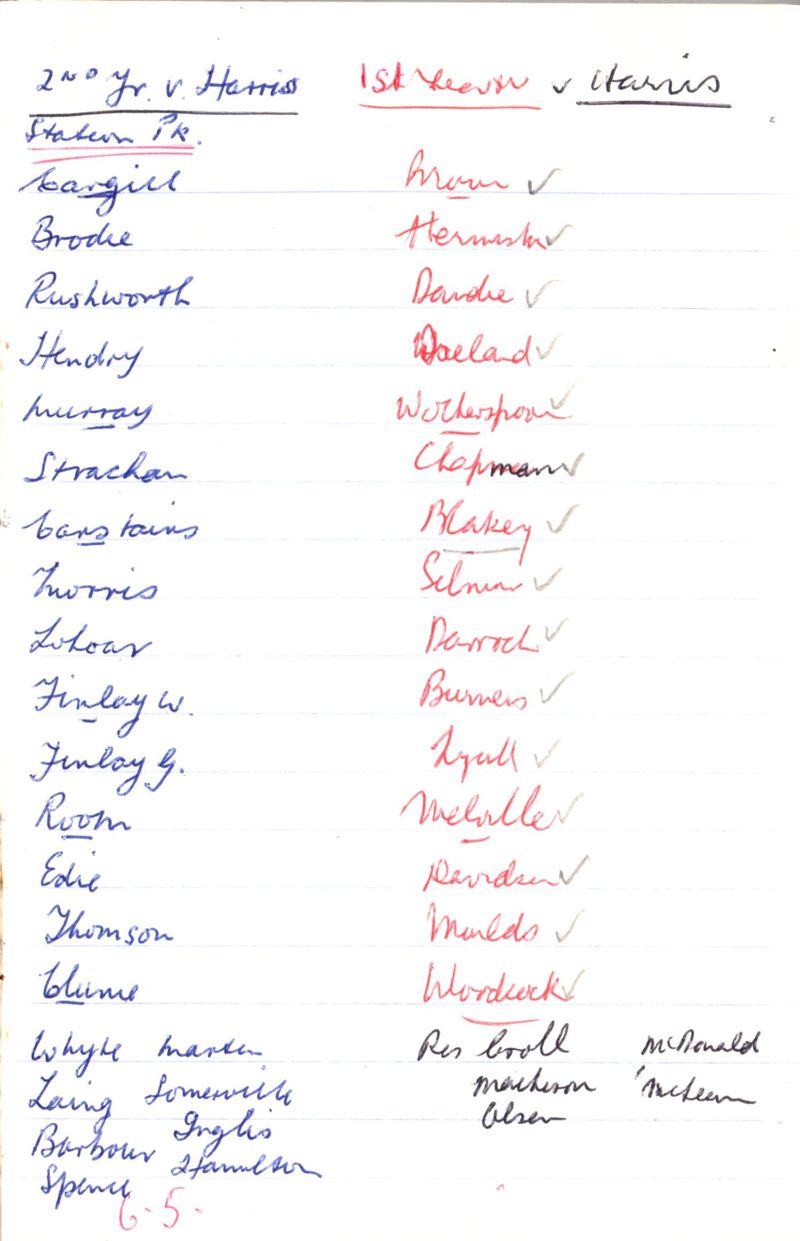 2ND Yr. v. Harris
Station Pk.
Cargill
Brodie
Rushworth
Hendry
Murray
Strachan
Carstairs
Morris
Lohoar
Finlay W.
Finlay G.
Room
Edie
Thomson
Clunie
Whyte Martin
Laing Somerville
Barbour Inglis
Spence Hamilton
6-5-
1st v Harris
Brown ✓
✓
✓
✓
Wotherspoon ✓
Chapman ✓
Blakey ✓
✓
Darroch ✓
✓
Lyall ✓
Melville ✓
Davidson ✓
✓
Woodcock ✓
Res Croll McDonald
Matheson McLean
Olsen